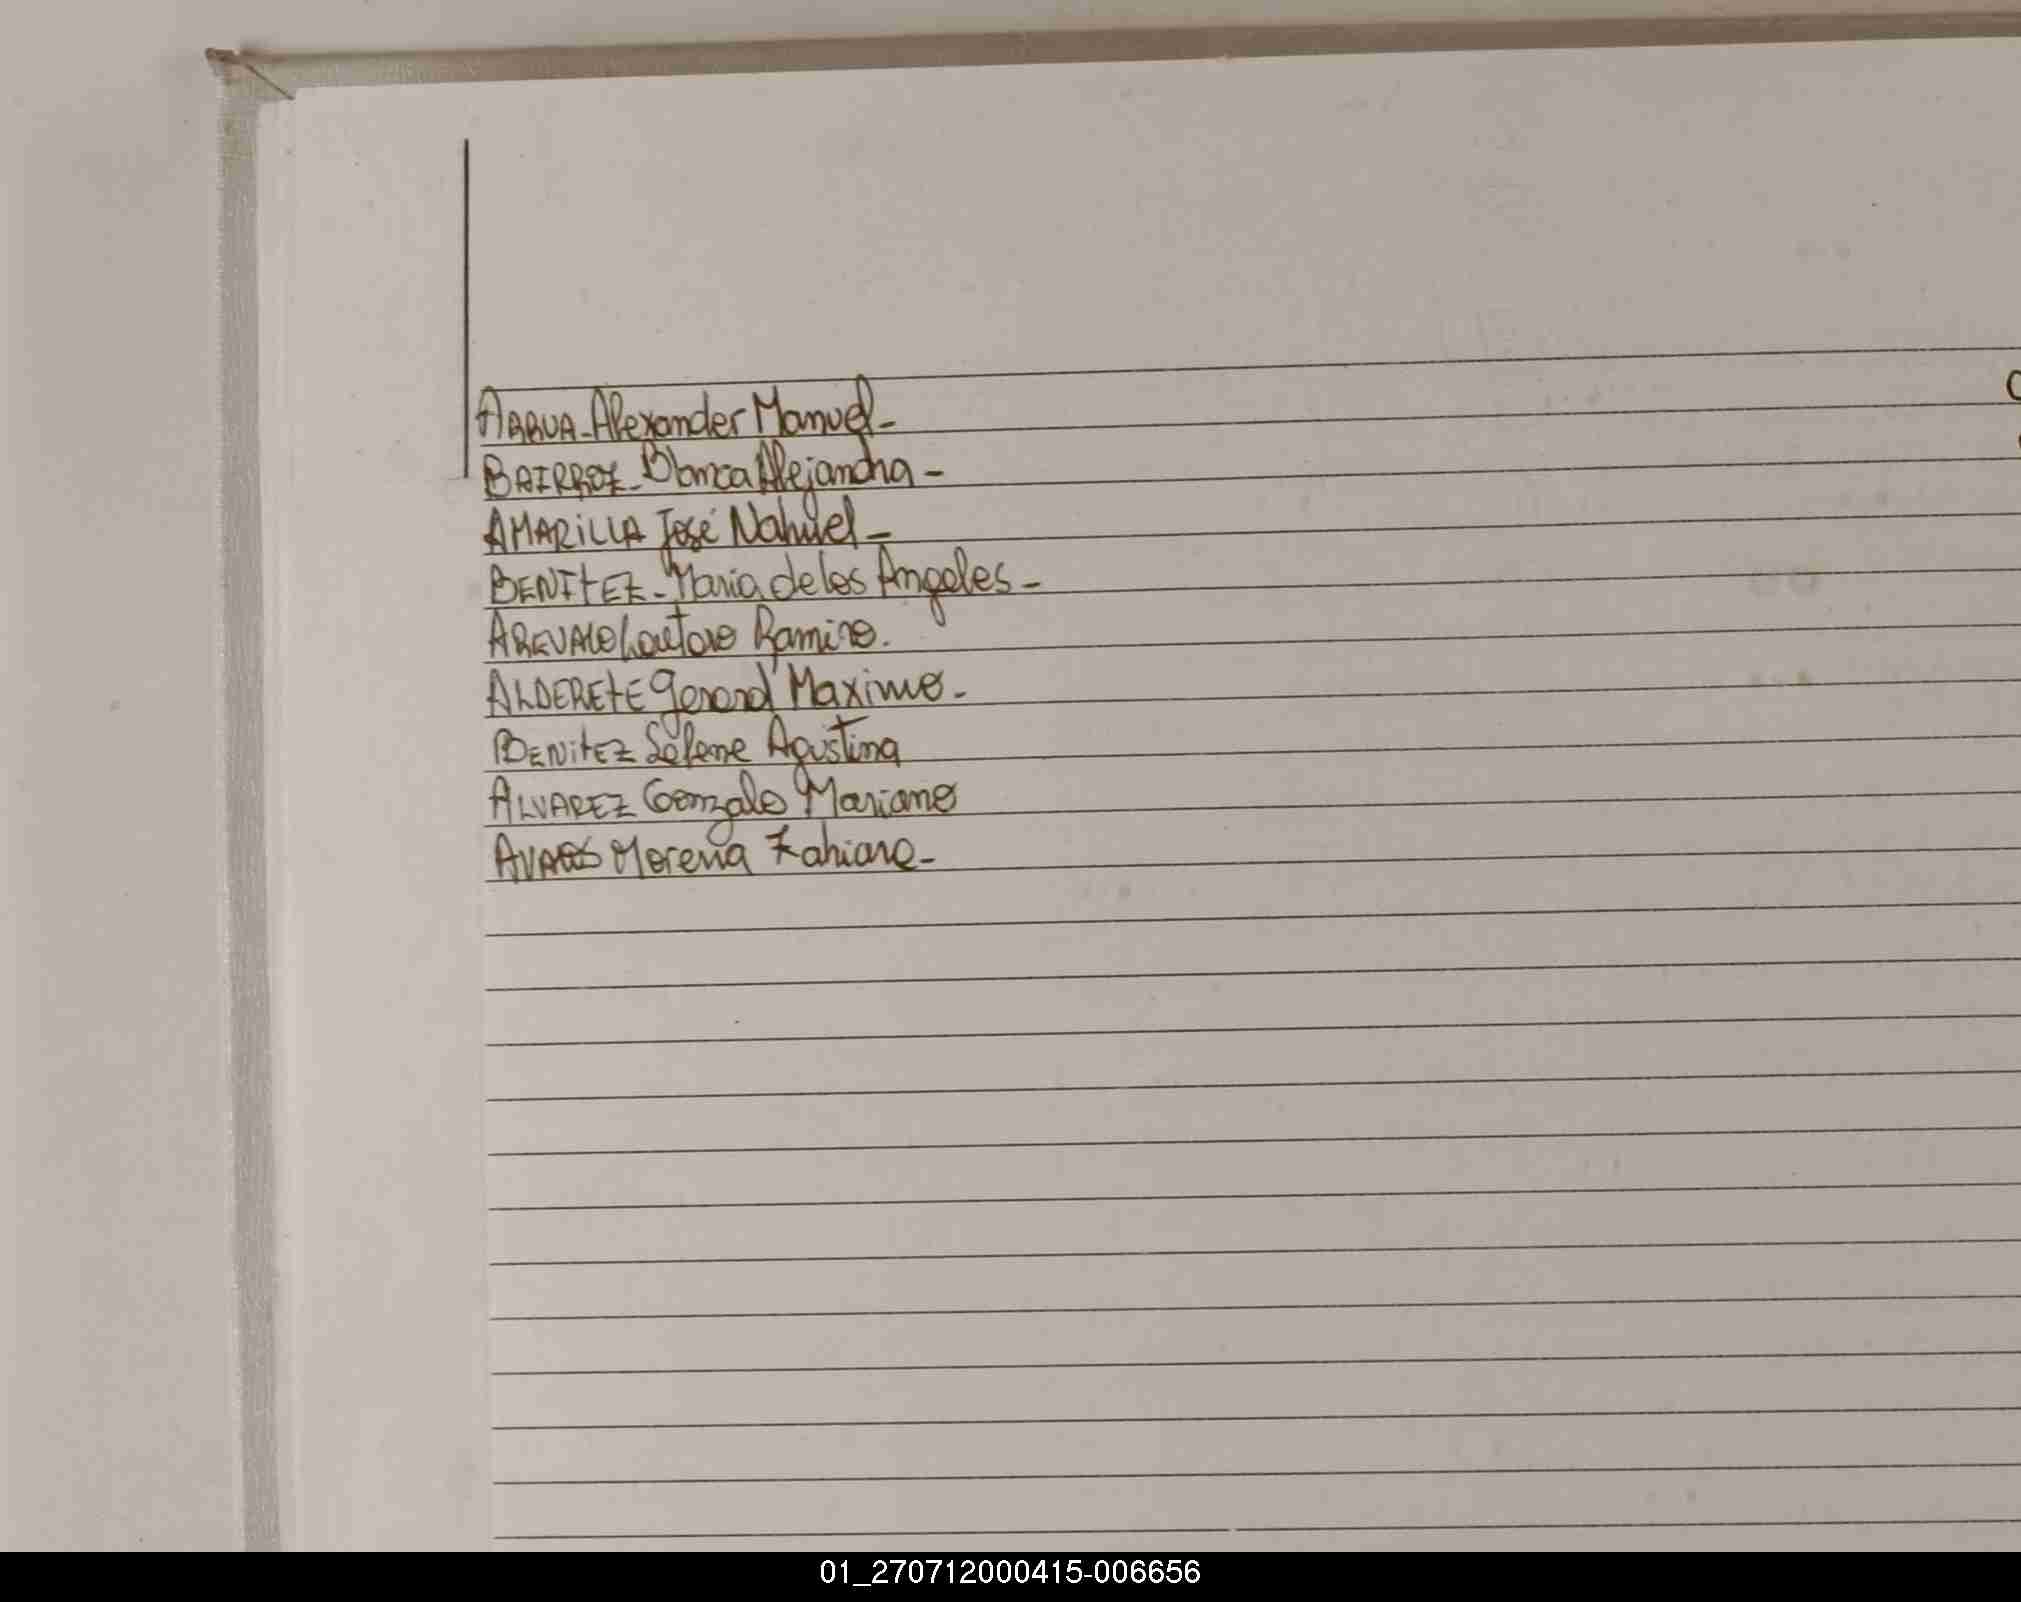 ARRUA - Alexander Manuel -
BAIRROZ - Blanca Alejandra -
AMARILLA José Nahuel -
BENITEZ - Maria de los Angeles -
AREVALO Lautaro Ramiro.
ALDERETE Gerard Maximo -
BENITEZ Selene Agustina
ALVAREZ Gonzalo Mariano
Morena
01_270712000415-006656